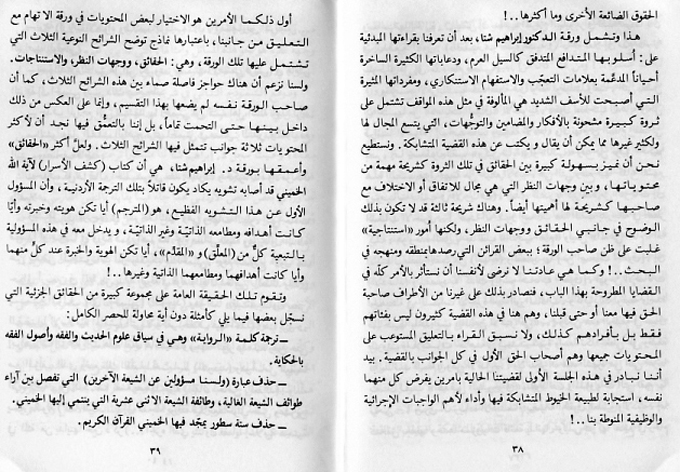 الحقوق الضائعة الأخرى وما أكثرها..!
هذا وتشمل ورقة الدكتور إبراهيم شتا، بعد أن تعرفنا بقراءتها المبدئية
على: أسلوبها المتدافع المتدفق كالسيل العرم، ودعاباتها الكثيرة الساخرة
أحياناً المدعّمة بعلامات التعجّب والاستفهام الاستنكاري، ومفرداتها المثيرة
التي أصبحت للأسف الشديد هي المألوفة في مثل هذه المواقف تشتمل على
ثروة كبيرة مشحونة بالأفكار والمضامين والتوجُّهات، التي يتسع المجال لها
ولكثير غيرها مما يمكن أن يقال و يكتب عن هذه القضية المتشابكة. ونستطيع
نحن أن نميز بسهولة كبيرة بين الحقائق في تلك الثروة كشريحة مهمة من
محتوياتها، و بين وجهات النظر التي هي مجال للاتفاق أو الاختلاف مع
صاحبها كشريحة لها أهميتها أيضاً. وهناك شريحة ثالثة قد لا تكون بذلك
الوضوح في جانبي الحقائق ووجهات النظر، ولكنها أمور «استنتاجية»
غلبت على ظن صاحب الورقة؛ ببعض القرائن التي رصدها بمنطقه ومنهجه في
البحث..! وكما هي عادتنا لا نرضى لأنفسنا أن نستأثر بالأمر كلّه في
القضايا المطروحة بهذا الباب، فنصادر بذلك على غيرنا من الأطراف صاحبة
الحق فيها معنا أو حتى قبلنا، وهم هنا في هذه القضية كثيرون ليس بفئاتهم
فقط بل بأفرادهم كذلك، ولا نسبق القراء بالتعليق المستوعب على
المحتويات جميعها وهم أصحاب الحق الأول في كل الجوانب بالقضية. بيد
أننا نبادر في هذه الجلسة الأولى لقضيتنا الحالية بأمرين يفرض كل منهما
نفسه، استجابة لطبيعة الخيوط المتشابكة فيها وأداء لأهم الواجبات الإجرائية
والوظيفية المنوطة بنا..!
٣٨
أول ذلكما الأمرين هو الاختيار لبعض المحتويات في ورقة الاتهام مع
التعليق من جانبنا، باعتبارها نماذج توضح الشرائح النوعية الثلاث التي
تشتمل عليها تلك الورقة، وهي: الحقائق، ووجهات النظر، والاستنتاجات.
ولسنا نزعم أن هناك حواجز فاصلة صماء بين هذه الشرائح الثلاث، كما أن
صاحب الورقة نفسه لم يضعها بهذا التقسيم، وإنما على العكس من ذلك
داخل بينها حتى التحمت تماماً، بل إننا بالتعمُّق فيها نجد أن لأكثر
المحتويات ثلاثة جوانب تتمثل فيها الشرائح الثلاث. ولعلّ أكثر «الحقائق»
وأعمقها بورقة د. إبراهيم شتا، هي أن كتاب (كشف الأسرار) لآية الله
الخميني قد أصابه تشويه يكاد يكون قاتلاً بتلك الترجمة الأردنية، وأن المسؤول
الأول عن هذا التشويه الفظيع، هو (المترجم) أيا تكن هويته وخبرته وأيا
كانت أهدافه ومطامعه الذاتيّة وغير الذاتيّة، و يدخل معه في هذه المسؤولية
بالتبعية كلٌّ من (المعلّق) و «المقدّم»، أيا تكن الهوية والخبرة عند كلّ منهما
وأيا كانت أهدافهما ومطامعهما الذاتية وغيرها..!
وتقوم تلك الحقيقة العامة على مجموعة كبيرة من الحقائق الجزئية التي
نسجّل بعضها فيما يلي كأمثلة دون أية محاولة للحصر الكامل:
ــ ترجمة كلمة «الرواية» وهي في سياق علوم الحديث والفقه وأصول الفقه
بالحكاية.
ــ حذف عبارة (ولسنا مسؤولين عن الشيعة الآخرين) التي تفصل بين آراء
طوائف الشيعة الغالية، وطائفة الشيعة الاثنى عشرية التي ينتمي إليها الخميني.
ــ حذف ستة سطور يمجّد فيها الخميني القرآن الكريم.
٣٩